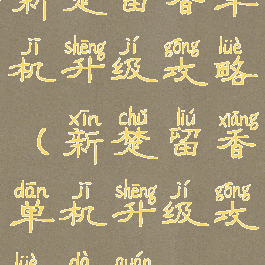 新楚留香单
jī shēng jí gōng lüè
机升级攻略
xīn chǔ liú xiāng
(新楚留香
dān jī shēng jí gōng
单机升级攻
lüè dà quán